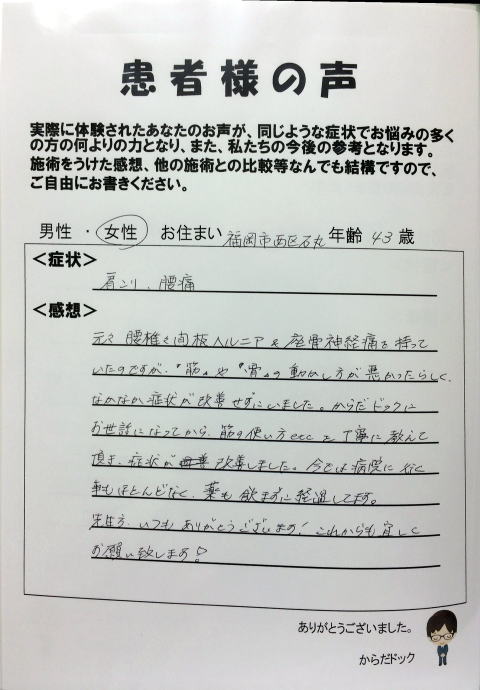 患者様の声
実際に体験されたあなたのお声が、同じような症状でお悩みの多く
の方の何よりの力となり、また、私たちの今後の参考となります。
施術をうけた感想、他の施術との比較等なんでも結構ですので、
ご自由にお書きください。
男性 ・ 女性 お住まい 福岡市西区石丸 年齢 43 歳
<症状>
肩こり、腰痛
<感想>
元々 腰椎々間板ヘルニア & 座骨神経痛を持って
いたのですが、『筋』や『骨』の動かし方が悪かったらしく、
なかなか症状が改善せずにいました。からだドックに
お世話になってから、筋の使い方etcを丁寧に教えて
頂き、症状が 改善しました。今では病院に行く
事もほとんどなく、薬も飲まずに経過してます。
先生方、いつもありがとうございます!これからも宜しく
お願い致します!
ありがとうございました。
からだドック